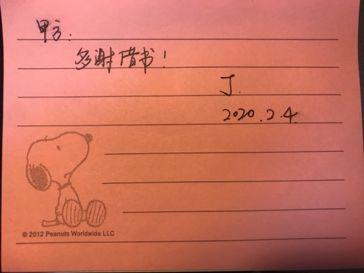 甲方：
多谢借书！
丁.
2020.2.4.
© 2012 Peanuts Worldwide LLC